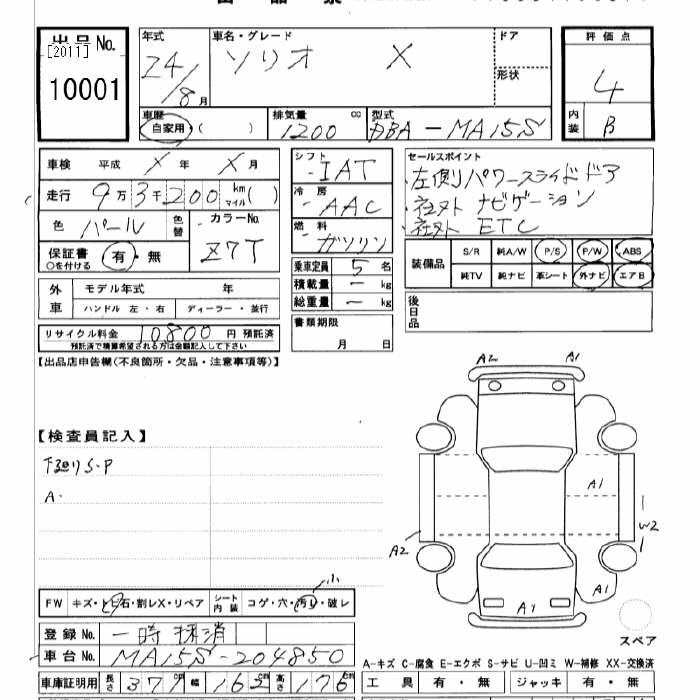 出品No. [2011] 10001
年式 24/8月
車名・グレード ソリオ X
ドア
形状
評価点 4
内装 B
車歴 自家用・( )
排気量 1200 cc
型式 DBA-MA15S
車検 平成 X年 X月
走行 9万3千200 km マイル( )
色 パール 色替
カラーNo. Z7T
保証書 有・無
○を付ける
シフト IAT
冷房 AAC
燃料 ガソリン
乗車定員 5名
積載量 - kg
総重量 - kg
書類期限
月 日
セールスポイント
・左側パワースライドドア
・社外ナビゲーション
・社外 ETC
装備品 S/R 純A/W P/S P/W ABS
純TV 純ナビ 革シート 外ナビ エアB
後日品
外車 モデル年式 年
ハンドル 左・右 ディーラー・並行
リサイクル料金 10800 円 預託済
預託済で精算希望される方は金額記入して下さい
【出品店申告欄(不良箇所・欠品・注意事項等)】
【検査員記入】
下廻りS・P
A・
A2 A1
A1
W2
A2
A1
A1
スペア
FW キズ・ヒ石・割レX・リペア シート内装 コゲ・穴・汚レ・破レ 小
登録No. 一時抹消
車台No. MA15S-204850
車庫証明用 長さ 371cm 幅 162cm 高さ 176cm
A-キズ C-腐食 E-エクボ S-サビ U-凹ミ W-補修 XX-交換済
工具 有・無 ジャッキ 有・無